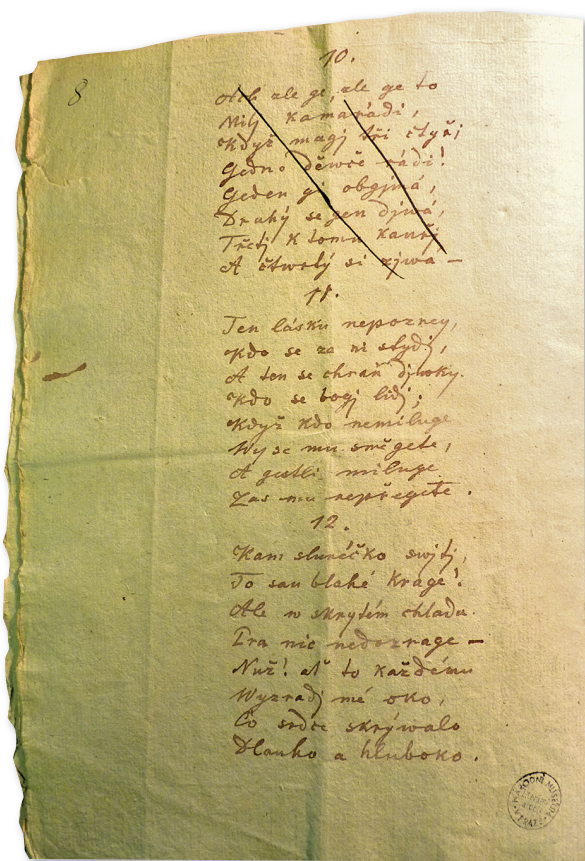 10.
8
Ach ale ge, ale ge to
Milj kamarádi,
Když magj tři čtyřj
Gedno děwče rádi!
Geden gi obgjmá,
Druhý se gen djwá,
Třetj k tomu kauřj
A čtwrtý si zjwá —
11.
Ten lásku nepozney,
Kdo se za ni stydj,
A ten se chraň djwky.
Kdo se bogj lidj;
Když kdo nemiluge
Wy se mu směgete,
A gestli miluge
Zas mu nepřegete.
12.
Kam slunéčko swjtj,
To sau blahé krage!
Ale w skrytém chladu.
Tra nic nedozrage —
Nuž! ať to každému
Wyzradj mé oko,
Co srdce skrýwalo
Dlauho a hluboko.
NÁRODNÍ MUSEUM
PRAZE